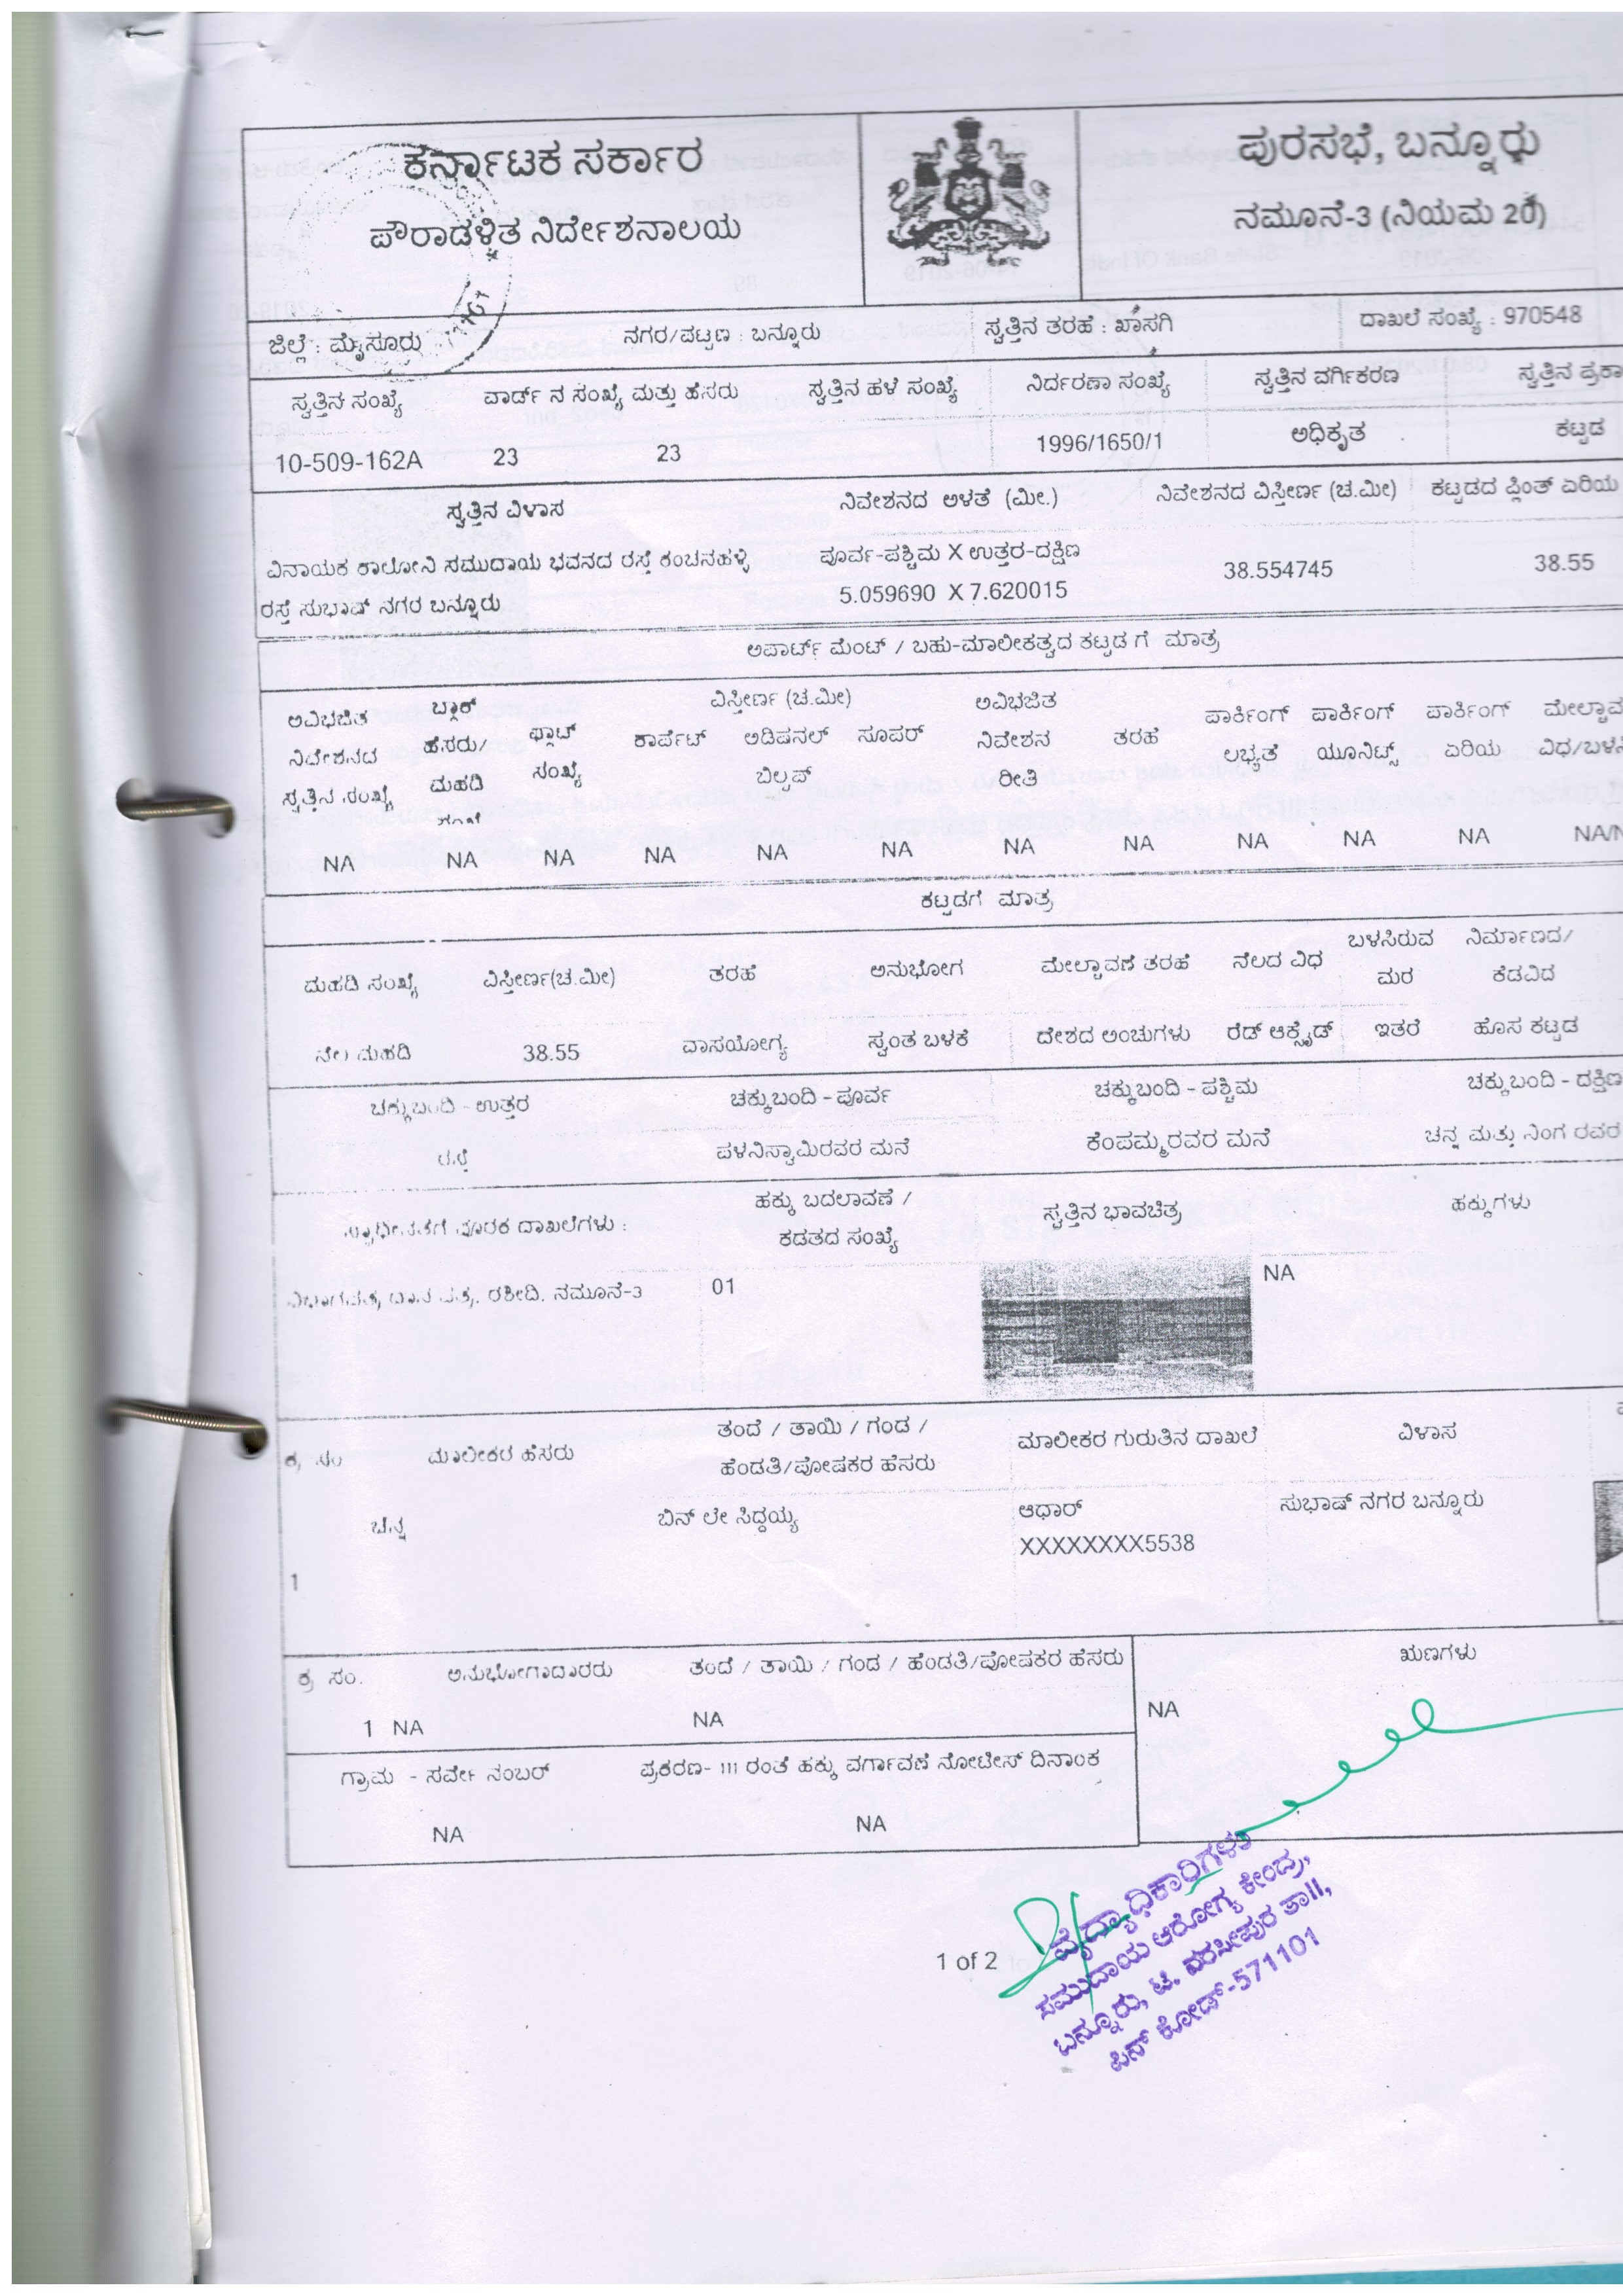 ಕರ್ನಾಟಕ ಸರ್ಕಾರ
ಪೌರಾಡಳಿತ ನಿರ್ದೇಶನಾಲಯ
ಪುರಸಭೆ, ಬನ್ನೂರು
ನಮೂನೆ-3 (ನಿಯಮ 20)
ಜಿಲ್ಲೆ : ಮೈಸೂರು ನಗರ/ಪಟ್ಟಣ : ಬನ್ನೂರು ಸ್ವತ್ತಿನ ತರಹೆ : ಖಾಸಗಿ ದಾಖಲೆ ಸಂಖ್ಯೆ : 970548
ಸ್ವತ್ತಿನ ಸಂಖ್ಯೆ ವಾರ್ಡ್ ನ ಸಂಖ್ಯೆ ಮತ್ತು ಹೆಸರು ಸ್ವತ್ತಿನ ಹಳೆ ಸಂಖ್ಯೆ ನಿರ್ದರಣಾ ಸಂಖ್ಯೆ ಸ್ವತ್ತಿನ ವರ್ಗಿಕರಣ ಸ್ವತ್ತಿನ
10-509-162A 23 23 1996/1650/1 ಅಧಿಕೃತ ಕಟ್ಟಡ
ಸ್ವತ್ತಿನ ವಿಳಾಸ ನಿವೇಶನದ ಅಳತೆ (ಮೀ.) ನಿವೇಶನದ ವಿಸ್ತೀರ್ಣ (ಚ.ಮೀ) ಕಟ್ಟಡದ ಪ್ಲಿಂತ್ ಏರಿಯ
ವಿನಾಯಕ ಕಾಲೋನಿ ಸಮುದಾಯ ಭವನದ ರಸ್ತೆ ಕಂಚನಹಳ್ಳಿ ಪೂರ್ವ-ಪಶ್ಚಿಮ X ಉತ್ತರ-ದಕ್ಷಿಣ 38.554745 38.55
ರಸ್ತೆ ಸುಭಾಷ್ ನಗರ ಬನ್ನೂರು 5.059690 X 7.620015
ಅಪಾರ್ಟ್ ಮೆಂಟ್ / ಬಹು-ಮಾಲೀಕತ್ವದ ಕಟ್ಟಡ ಗೆ ಮಾತ್ರ
ಬ್ಲಾಕ್ ವಿಸ್ತೀರ್ಣ (ಚ.ಮೀ) ಅವಿಭಜಿತ
ಅವಿಭಜಿತ ಹೆಸರು/ ಫ್ಲಾಟ್ ಕಾರ್ಪೆಟ್ ಅಡಿಷನಲ್ ಸೂಪರ್ ನಿವೇಶನ ತರಹೆ ಪಾರ್ಕಿಂಗ್ ಪಾರ್ಕಿಂಗ್ ಪಾರ್ಕಿಂಗ್
ನಿವೇಶನದ ಮಹಡಿ ಸಂಖ್ಯೆ ಬಿಲ್ಟಪ್ ರೀತಿ ಲಭ್ಯತೆ ಯೂನಿಟ್ಸ್ ಏರಿಯ
ಸ್ವತ್ತಿನ ಸಂಖ್ಯೆ
NA NA NA NA NA NA NA NA NA NA NA
ಕಟ್ಟಡಗೆ ಮಾತ್ರ
ಮಹಡಿ ಸಂಖ್ಯೆ ವಿಸ್ತೀರ್ಣ(ಚ.ಮೀ) ತರಹೆ ಅನುಭೋಗ ಮೇಲ್ಚಾವಣೆ ತರಹೆ ನೆಲದ ವಿಧ ಬಳಸಿರುವ ಮರ ನಿರ್ಮಾಣದ/ ಕೆಡವಿದ
ನೆಲ ಮಹಡಿ 38.55 ವಾಸಯೋಗ್ಯ ಸ್ವಂತ ಬಳಕೆ ದೇಶದ ಅಂಚುಗಳು ರೆಡ್ ಆಕ್ಸೈಡ್ ಇತರೆ ಹೊಸ ಕಟ್ಟಡ
ಚಕ್ಕುಬಂದಿ - ಉತ್ತರ ಚಕ್ಕುಬಂದಿ - ಪೂರ್ವ ಚಕ್ಕುಬಂದಿ - ಪಶ್ಚಿಮ ಚಕ್ಕುಬಂದಿ - ದಕ್ಷಿಣ
ಪಳನಿಸ್ವಾಮಿರವರ ಮನೆ ಕೆಂಪಮ್ಮರವರ ಮನೆ ಚನ್ನ ಮತ್ತು ನಿಂಗ ರವರ
ಪೂರಕ ದಾಖಲೆಗಳು : ಹಕ್ಕು ಬದಲಾವಣೆ / ಸ್ವತ್ತಿನ ಭಾವಚಿತ್ರ ಹಕ್ಕುಗಳು
ಕಡತದ ಸಂಖ್ಯೆ
ರಶೀದಿ. ನಮೂನೆ-3 01 NA
ಮಾಲೀಕರ ಹೆಸರು ತಂದೆ / ತಾಯಿ / ಗಂಡ / ಮಾಲೀಕರ ಗುರುತಿನ ದಾಖಲೆ ವಿಳಾಸ
ಹೆಂಡತಿ/ಪೋಷಕರ ಹೆಸರು
ಚೆನ್ನ ಬಿನ್ ಲೇ ಸಿದ್ದಯ್ಯ ಆಧಾರ್ ಸುಭಾಷ್ ನಗರ ಬನ್ನೂರು
XXXXXXXX5538
1
ಕ್ರ ಸಂ. ಅನುಭೋಗಾದಾರರು ತಂದೆ / ತಾಯಿ / ಗಂಡ / ಹೆಂಡತಿ/ಪೋಷಕರ ಹೆಸರು ಋಣಗಳು
1 NA NA NA
ಗ್ರಾಮ - ಸರ್ವೇ ನಂಬರ್ ಪ್ರಕರಣ- III ರಂತೆ ಹಕ್ಕು ವರ್ಗಾವಣೆ ನೋಟೀಸ್ ದಿನಾಂಕ
NA NA
ವೈದ್ಯಾಧಿಕಾರಿಗಳು
ಸಮುದಾಯ ಆರೋಗ್ಯ ಕೇಂದ್ರ,
ಬನ್ನೂರು, ಟಿ. ನರಸೀಪುರ ತಾ||,
ಪಿನ್ ಕೋಡ್-571101
1 of 2